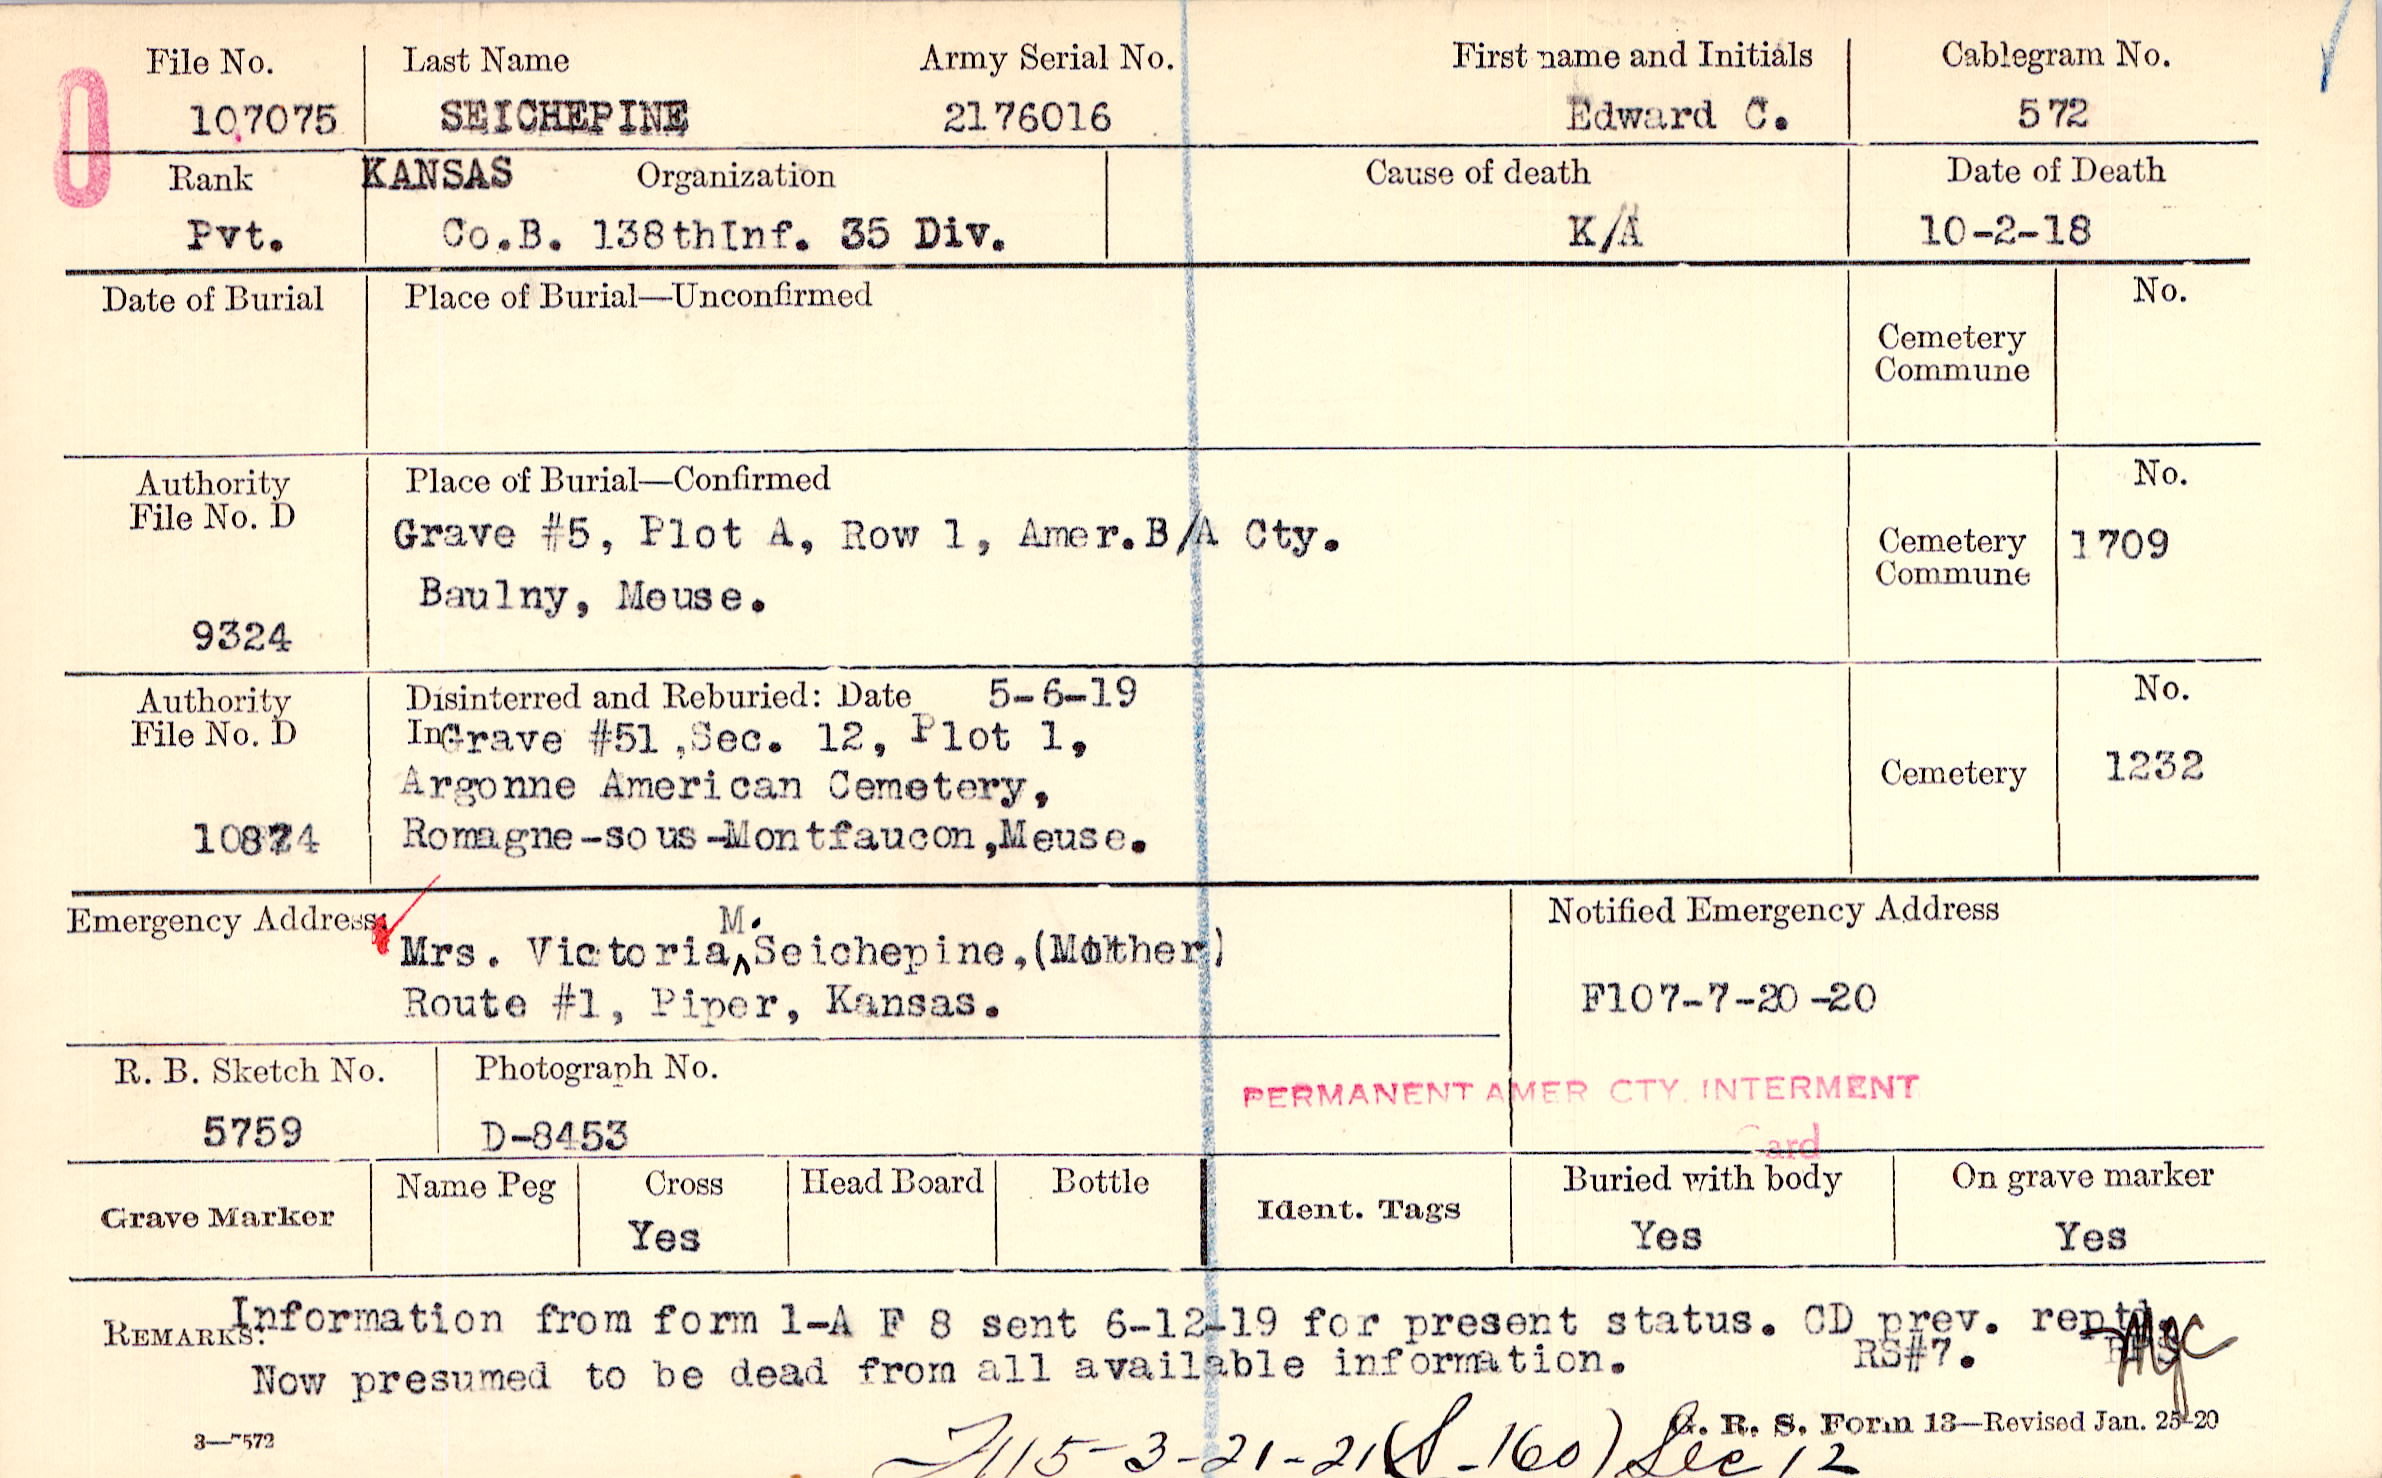 File No. Last Name Army Serial No. First name and Initials Cablegram No.
107075 SEICHEPINE 2176016 Edward C. 572
Rank KANSAS Organization Cause of death Date of Death
Pvt. Co.B. 138thInf. 35 Div. K/A 10-2-18
Date of Burial Place of Burial—Unconfirmed No.
Cemetery
Commune
Authority Place of Burial—Confirmed No.
File No. D
Grave #5, Plot A, Row 1, Amer.B/A Cty.
Cemetery 1709
Commune
Baulny, Meuse.
9324
Authority Disinterred and Reburied: Date 5-6-19 No.
File No. D InGrave #51,Sec. 12, Plot 1,
Argonne American Cemetery, Cemetery 1232
10874 Romagne-sous-Montfaucon,Meuse.
Emergency Address: Notified Emergency Address
M.
Mrs. Victoria^Seichepine,(Mother)
Route #1, Piper, Kansas. F107-7-20-20
R. B. Sketch No. Photograph No.
PERMANENT AMER CTY. INTERMENT
5759 D-8453
Card
Grave Marker Name Peg Cross Head Board Bottle Ident. Tags Buried with body On grave marker
Yes Yes Yes
REMARKS: Information from form 1-A F 8 sent 6-12-19 for present status. CD prev. reptd.
Now presumed to be dead from all available information. RS#7.
G. R. S. Form 13—Revised Jan. 25-20
3—7572
5-3-21-21(S-160) Sec 12